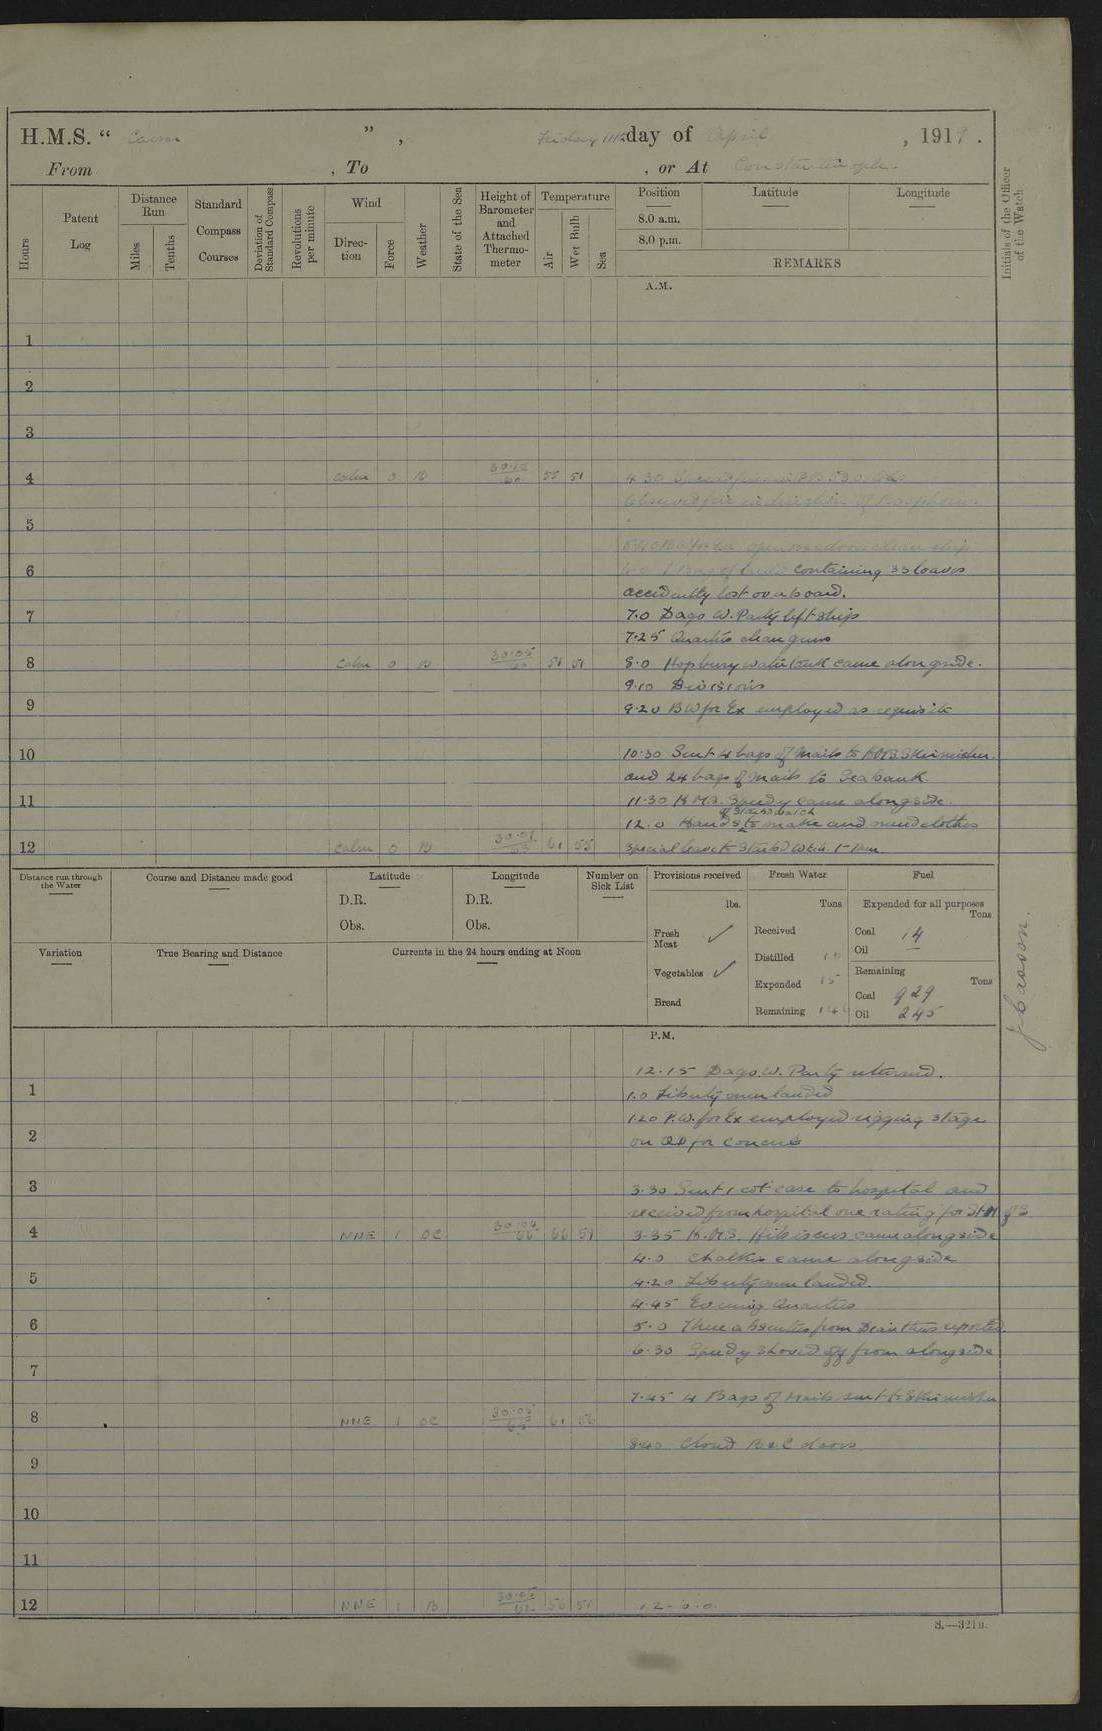 H.M.S. " Caesar ", Friday 11th day of April, 1919.
From , To , or At Constantinople
Hours
Patent Log
Distance Run
Miles
Tenths
Standard Compass Courses
Deviation of Standard Compass
Revolutions per minute
Wind
Direc-tion
Force
Weather
State of the Sea
Height of Barometer and Attached Thermo-meter
Temperature
Air
Wet Bulb
Sea
Position
Latitude
Longitude
8.0 a.m.
8.0 p.m.
REMARKS
Initials of the Officer of the Watch
A.M.
1
2
3
4 calm 0 B 60 55 51 4.30
Observed fire in direction of Bosphorus
5
clean ship
6 containing 33 loaves
accidently lost overboard.
7 7.0 Dago W. Party left ship
7.25 Quarters clean guns
8 calm 0 B 30.05 51 8.0 Hopbury water tank came alongside.
9.10 Divisions
9 9.20 BW for Ex employed as requisite
10 10.30 Sent 4 bags of Mails to HMS Skirmisher
and 24 bags of mails to Seabank.
11 11.30 H.M.S. Speedy came alongside.
of Starbd watch
12.0 Hands to make and mend clothes
12 calm 0 B 63 61 55 Special leave to Starbd Wtch. 1-7pm.
Distance run through the Water
Course and Distance made good
Latitude
D.R.
Obs.
Longitude
D.R.
Obs.
Number on Sick List
Provisions received
lbs.
Fresh Meat ✓
Vegetables ✓
Bread
Fresh Water
Tons
Received
Distilled
Expended 15
Remaining
Fuel
Expended for all purposes
Tons
Coal 14
Oil —
Remaining
Tons
Coal 929
Oil 245
Variation
True Bearing and Distance
Currents in the 24 hours ending at Noon
P.M.
12.15 Dago. W. Party returned.
1 1.0 Liberty men landed
1.20 P.W. for Ex employed rigging stage
2 on QD for concert
3 3.30 Sent 1 cot case to hospital and
received from hospital one rating for
4 NNE 1 OC 30.04 66 66 59 3.35 H.M.S. Hibiscus came alongside
4.0 Chalkis came alongside
5 4.20 Liberty men landed.
4.45 Evening Quarters
6 5.0 Three absentees from Dianthus reported.
6.30 Speedy shoved off from alongside
7
7.45 4 Bags of Mails sent to Skirmisher
8 NNE 1 OC 30.05 65 61 56
8.40 Closed B & C doors.
9
10
11
12 NNE 1 B 30.05 56 51 12.0.0.
S.—321a.